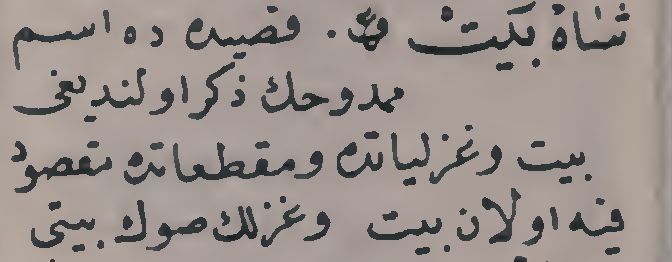 شاه بيت . قصيده ده اسم
ممدوحك ذكر اولنديغى
بيت وغزلياتده ومقطعاتده مقصود
فيه اولان بيت وغزلك صوك بيتى